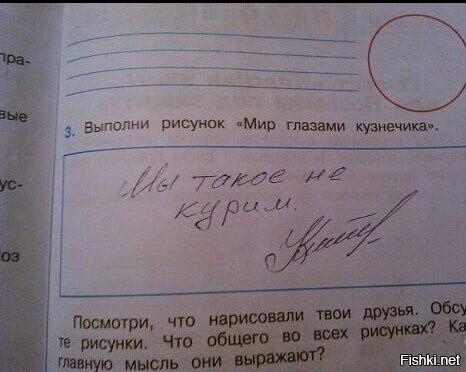 пра-
вые
ус-
оз
3. Выполни рисунок «Мир глазами кузнечика».
Мы такое не
курим.
Посмотри, что нарисовали твои друзья. Обсу
те рисунки. Что общего во всех рисунках? Ка
главную мысль они выражают?
Fishki.net